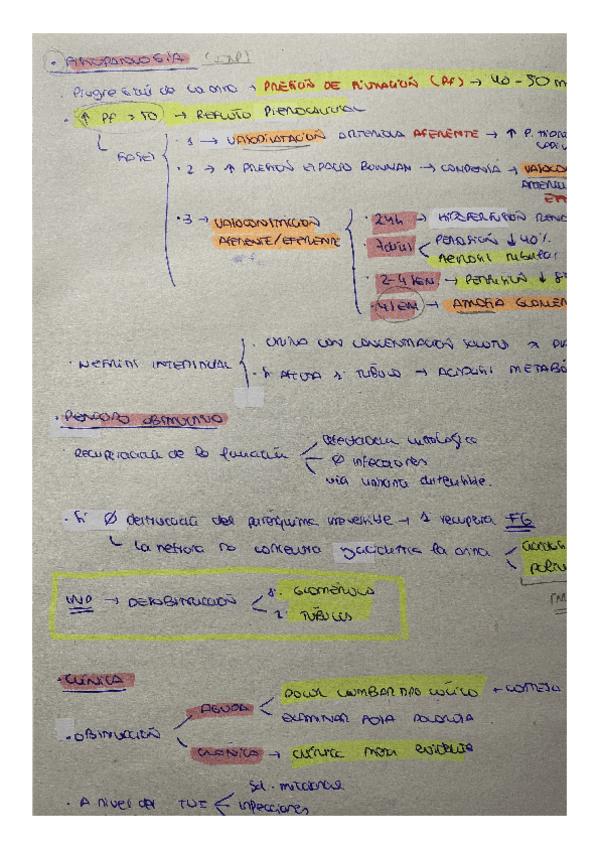 · FISIOPATOLOGÍA (IMP)
· Progresión de la orina → PRESIÓN DE FILTRACIÓN (PF) → 40 - 50 m
· ↑ PF > 50 → REFLUJO PIELOCALICIAL
FASES
· 1 → VASODILATACIÓN ARTERIOLA AFERENTE → ↑ P. HIDRO
CAPIL
· 2 → ↑ PRESIÓN ESPACIO BOWMAN → COMPENSA → VASOCO
ARTERIO
EFE
· 3 → VASOCONSTRICCIÓN
AFERENTE/EFERENTE
· 24h → HIPOPERFUSIÓN RENA
· 7 días PERFUSIÓN ↓ 40%
NECROSIS TUBULAR
· 2-4 SEM → PERFUSIÓN ↓
· 4 SEM → ATROFIA GLOMER
· NEFRITIS INTERSTICIAL
· ORINA CON CONCENTRACIÓN SOLUTOS
· Si AFECTA a TÚBULO → ACIDOSIS METABÓ
· PERIODO OBSTRUCTIVO
· RECUPERACIÓN de la función
Ø infecciones
vía urinaria distensible.
· Si Ø destrucción del parénquima irreversible → se recupera FG
└ La nefrona no concentra y acidifica la orina
IMP → DESOBSTRUCCIÓN 1. GLOMÉRULO
2. TÚBULOS
· CLÍNICA
· OBSTRUCCIÓN
AGUDA
DOLOR LUMBAR TIPO CÓLICO
EXAMINAR FOSA
CRÓNICA → CLÍNICA MENOS EVIDENTE
· A nivel del TUI
Sd. miccional
infecciones